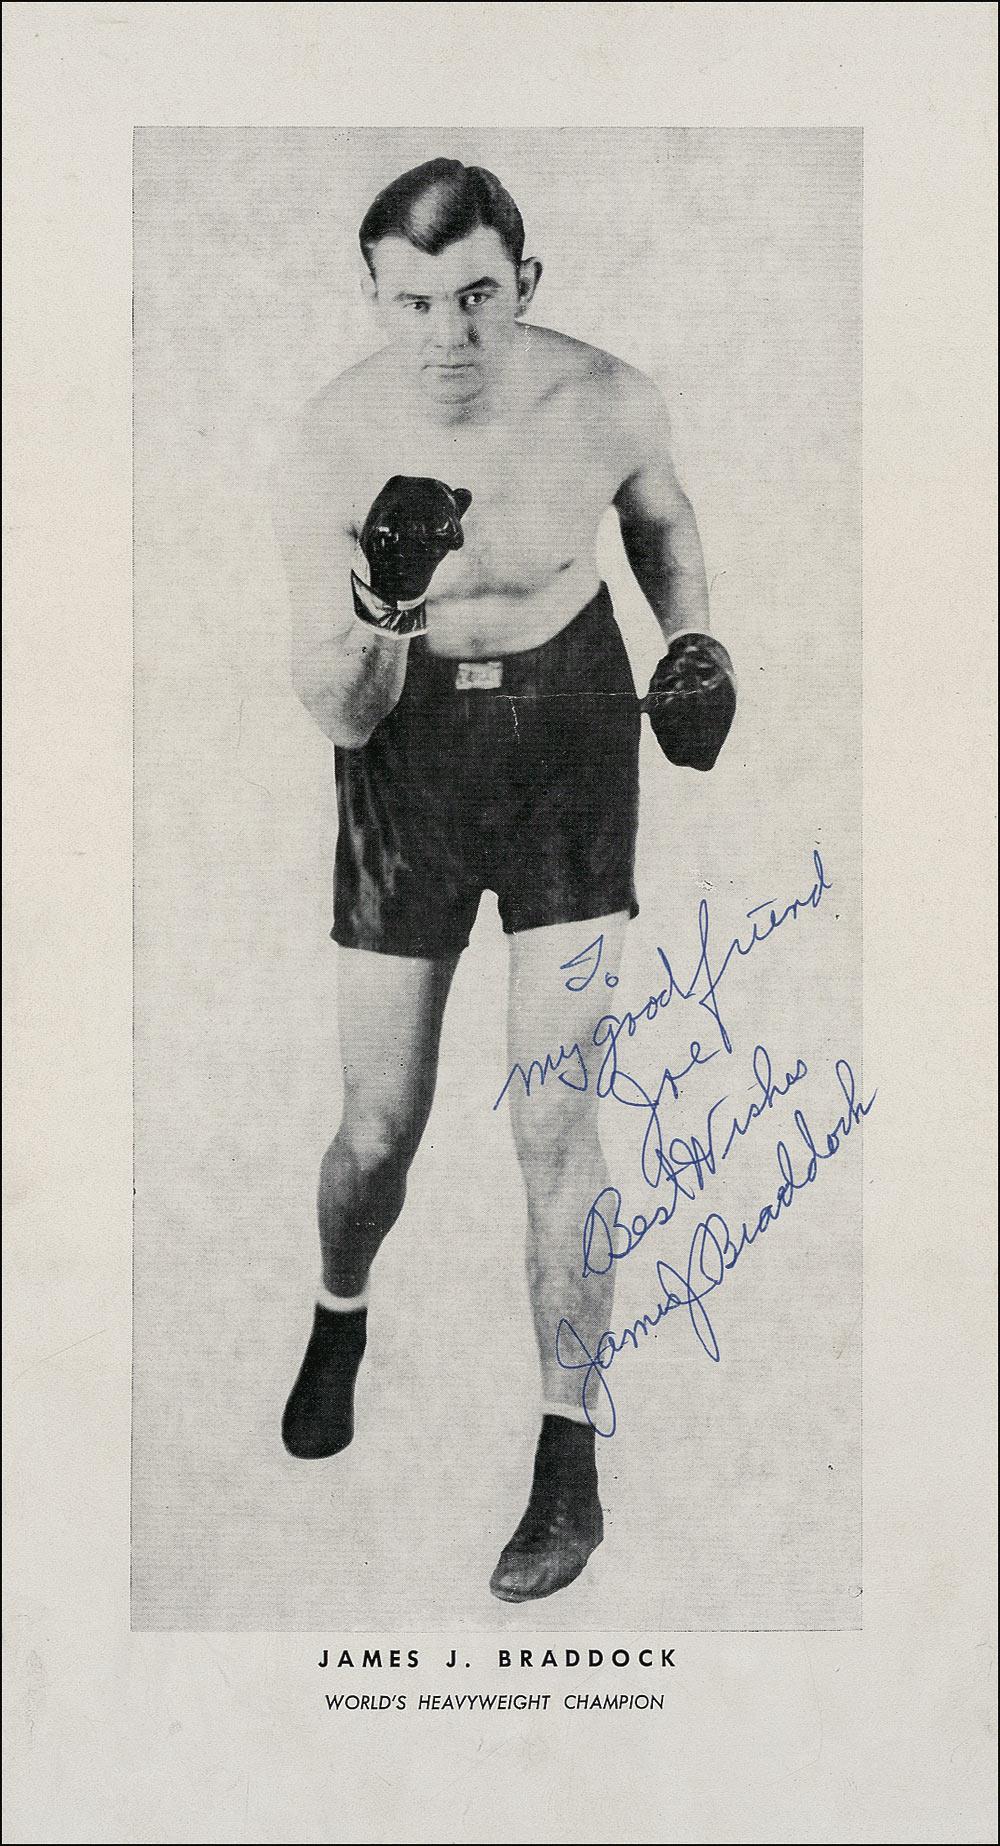 To
my good friend
Joe
Best Wishes
James J Braddock
JAMES J. BRADDOCK
WORLD'S HEAVYWEIGHT CHAMPION